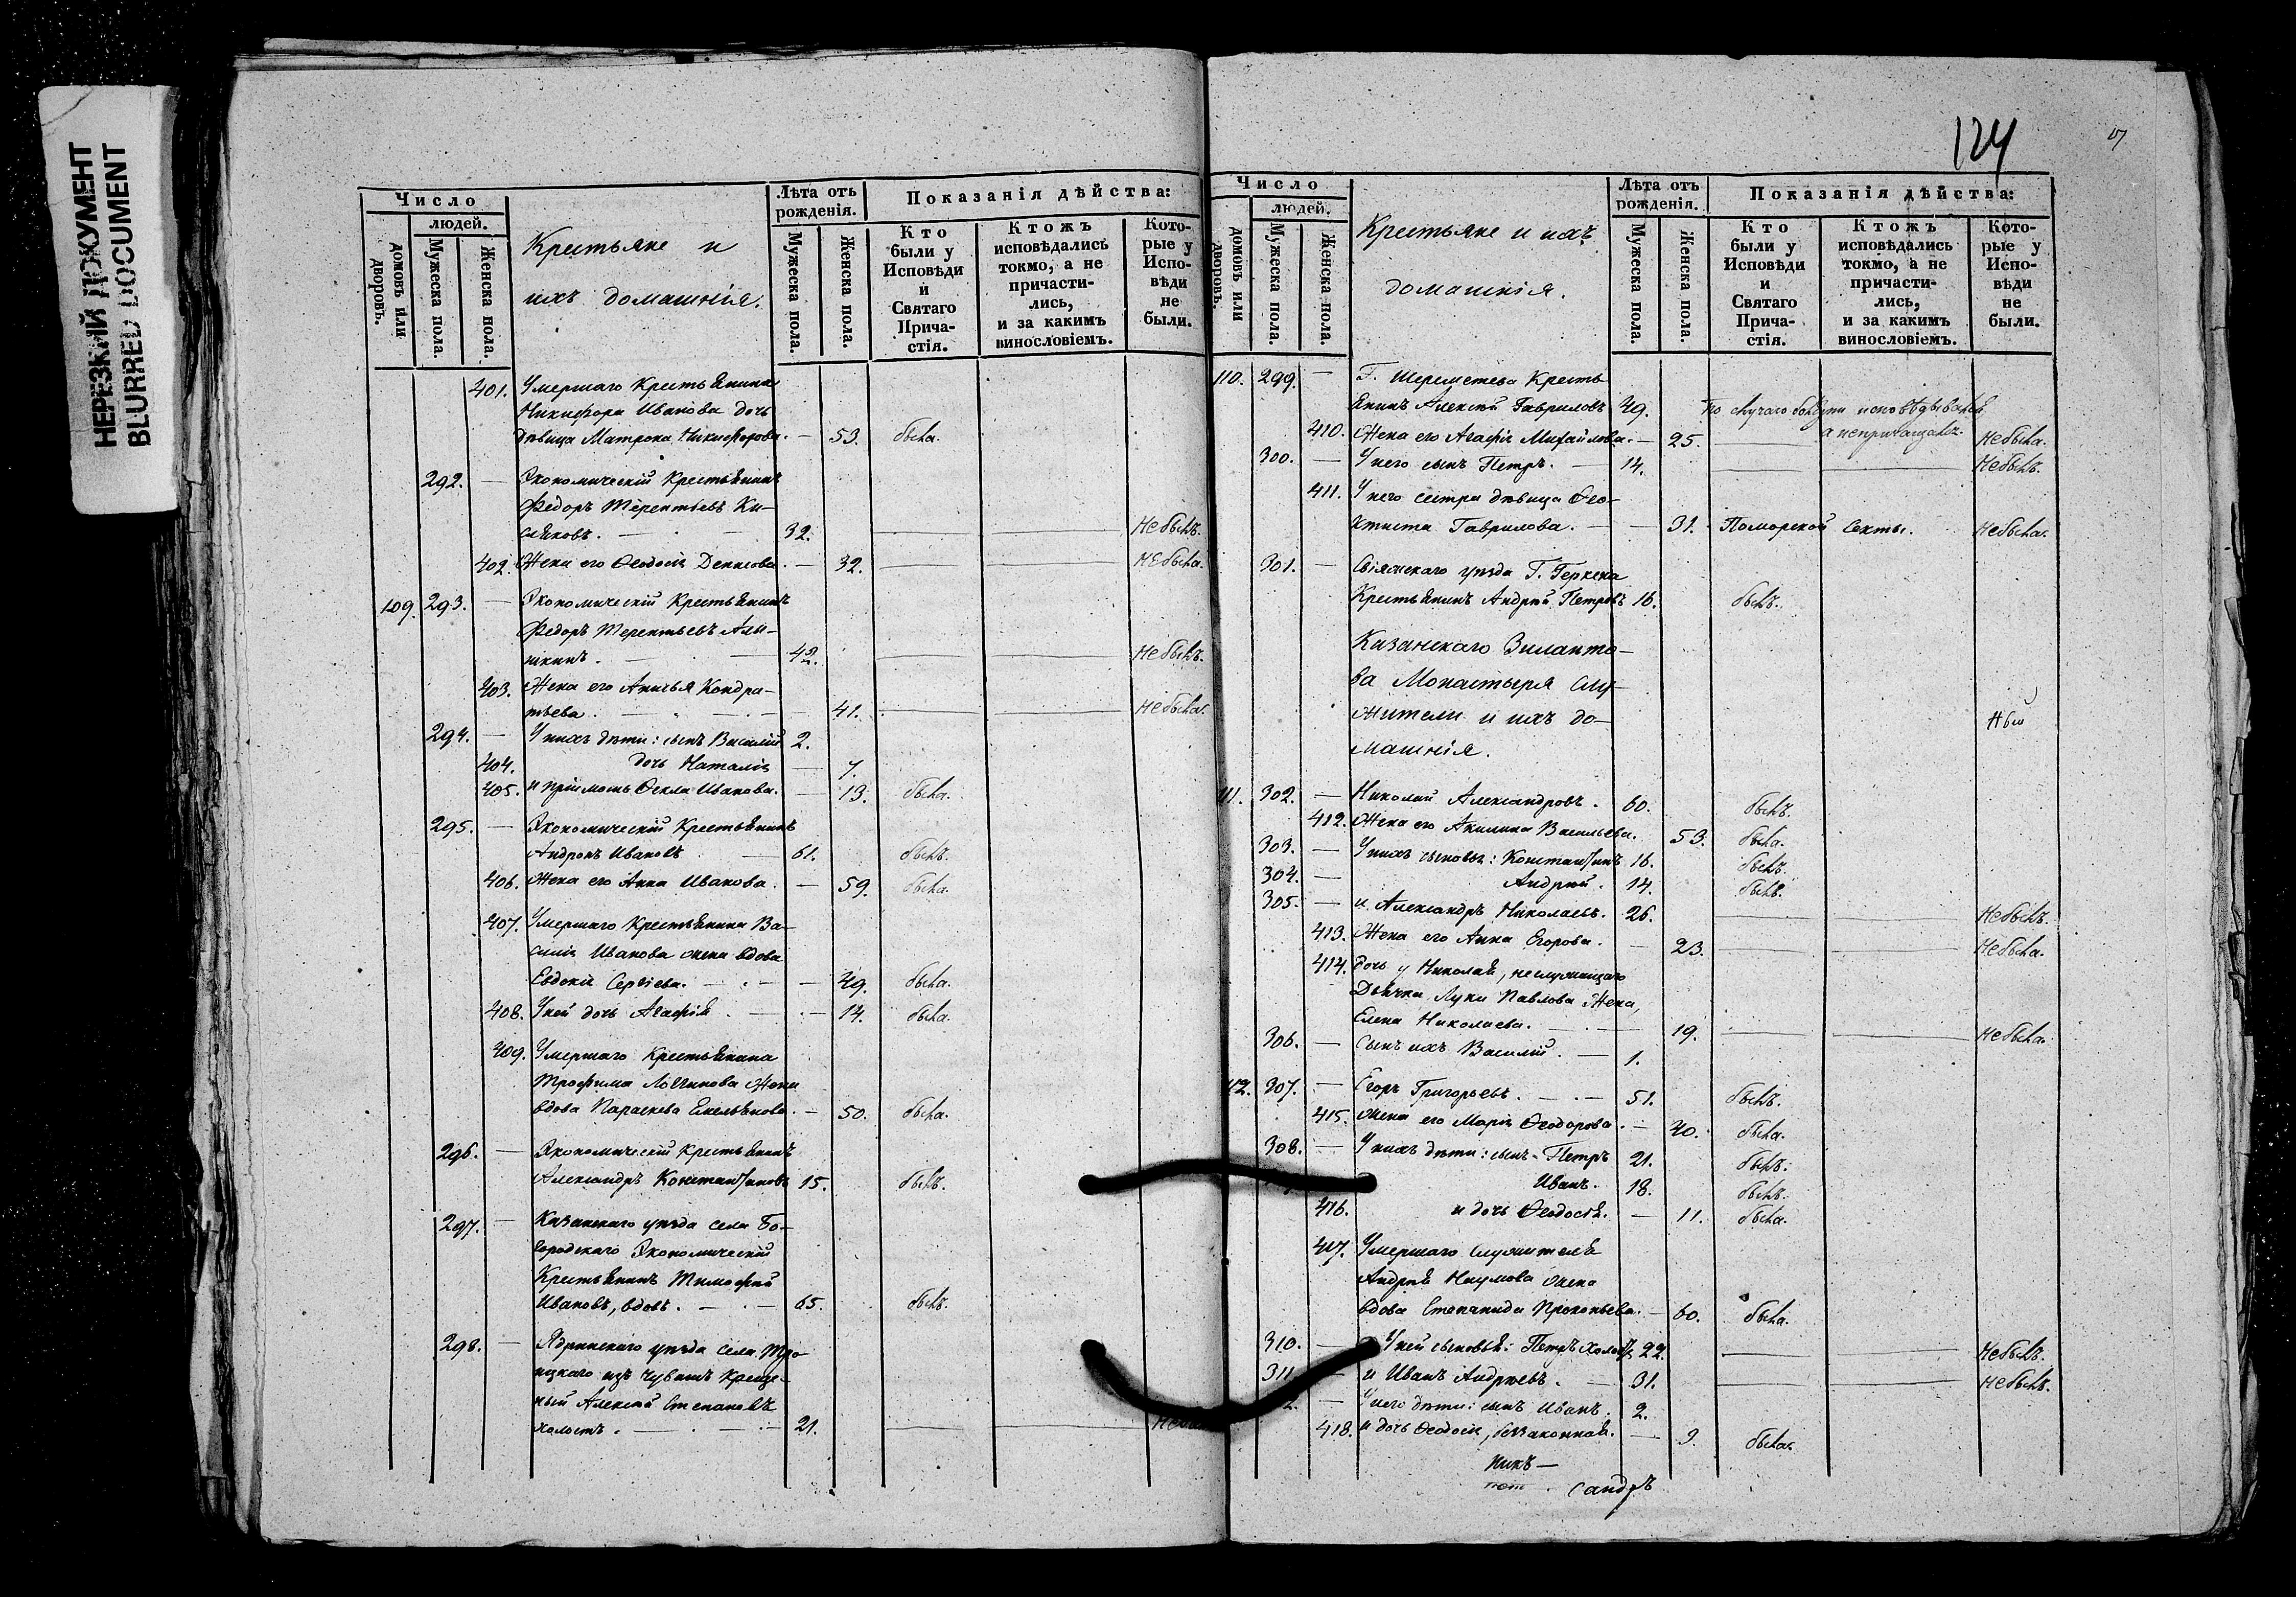 НЕРЕЗКИЙ ДОКУМЕНТ
BLURRED DOCUMENT
Число
людей.
домовъ или дворовъ.
Мужеска пола.
Женска пола.
Крестьяне и
ихъ домашнія.
Лѣта отъ рожденія.
Мужеска пола.
Женска пола.
Показанія дѣйства:
Кто были у Исповѣди и Святаго Прича-стія.
Ктожъ исповѣдались токмо, а не причасти-лись, и за какимъ винословіемъ.
Кото-рые у Испо-вѣди не были.
401. Умершаго Крестьянина
Никифора Иванова дочь
дѣвица Матрона Никифорова. — 53. была.
292. — Экономическій Крестьянинъ
Федоръ Терентьевъ Ки-
сляковъ. — 32. Небылъ.
402. Жена его Ѳеодосія Денисова. — 32. Небыла.
109. 293. — Экономическій Крестьянинъ
Федоръ Терентьевъ Али-
нікинъ. — 42. Небылъ.
403. Жена его Кондра-
тьева. — 41. Небыла.
294. — У нихъ дѣти: сынъ Василій 2.
404. дочь Наталія — 7.
405. и пріимошъ Ѳекла Иванова. — 13. была.
295. — Экономическій Крестьянинъ
Андронъ Ивановъ — 61. былъ.
406. Жена его Анна Иванова. — 59. была.
407. Умершаго Крестьянина Ва-
силія Иванова жена вдова
Евдокія Сергіева. — 49. была.
408. У ней дочь Агафія. — 14. была.
409. Умершаго Крестьянина
Трофима Логинова Жена
вдова Параскева Емельянова. — 50. была.
296. — Экономическій Крестьянинъ
Александръ Константиновъ 15. былъ.
297. — Казанскаго уѣзда села Бо-
городскаго Экономическій
Крестьянинъ Тимофей
Ивановъ, вдовъ. — 65. былъ.
298. — Ядринскаго уѣзда села Тро-
ицкаго изъ чувашъ Креще-
ный Алексѣй Степановъ
холостъ. — 21.
124
Число
людей.
домовъ или дворовъ.
Мужеска пола.
Женска пола.
Крестьяне и ихъ
домашнія.
Лѣта отъ рожденія.
Мужеска пола.
Женска пола.
Показанія дѣйства:
Кто были у Исповѣди и Святаго Прича-стія.
Ктожъ исповѣдались токмо, а не причасти-лись, и за какимъ винословіемъ.
Кото-рые у Испо-вѣди не были.
110. 299. — Г. Шереметева Кресть-
янинъ Алексѣй Гавриловъ 49. По случаю болезни исповѣдывался,
а непричащался.
410. Жена его Агафія Михайлова. — 25. Небыла.
300. — У него сынъ Петръ. — 14. Небылъ.
411. У него сестра дѣвица Ѳео-
ктиста Гаврилова. — 31. Поморской секты. Небыла.
301. — Свіяжскаго уѣзда Г. Геркена
Крестьянинъ Андрей Петровъ 16. былъ.
Казанскаго Зиланто-
ва Монастыря слу-
жители и ихъ до-
машнія.
111. 302. — Николай Александровъ. 60. былъ.
412. Жена его Акилина Васильева. 53. была.
303. — У нихъ сыновья: Константинъ 16. былъ.
304. — Андрей. 14. былъ.
305. — и Александръ Николаевъ. 26. Небылъ.
413. Жена его Анна Егорова. — 23. Небыла.
414. Дочь у Николая, неслужащаго
Дьячка Луки Павлова Жена,
Елена Николаева. — 19. Небыла.
306. — Сынъ ихъ Василій. — 1.
112. 307. — Егоръ Григорьевъ. — 51. былъ.
415. Жена его Марія Ѳеодорова. — 40. была.
308. — У нихъ дѣти: сынъ Петръ 21. былъ.
Иванъ. 18. былъ.
416. и дочь Ѳеодосія. — 11. была.
417. Умершаго служителя
Андрея Наумова жена
вдова Степанида Прокопьева. — 60. была.
310. — У ней сыновья: Петръ 22. Небылъ.
311. — и Иванъ Андреевъ. — 31. Небылъ.
— У него дѣти: сынъ Иванъ. 2.
418. и дочь Ѳеодосія, беззаконная. — 9. была.
никъ—
сандръ